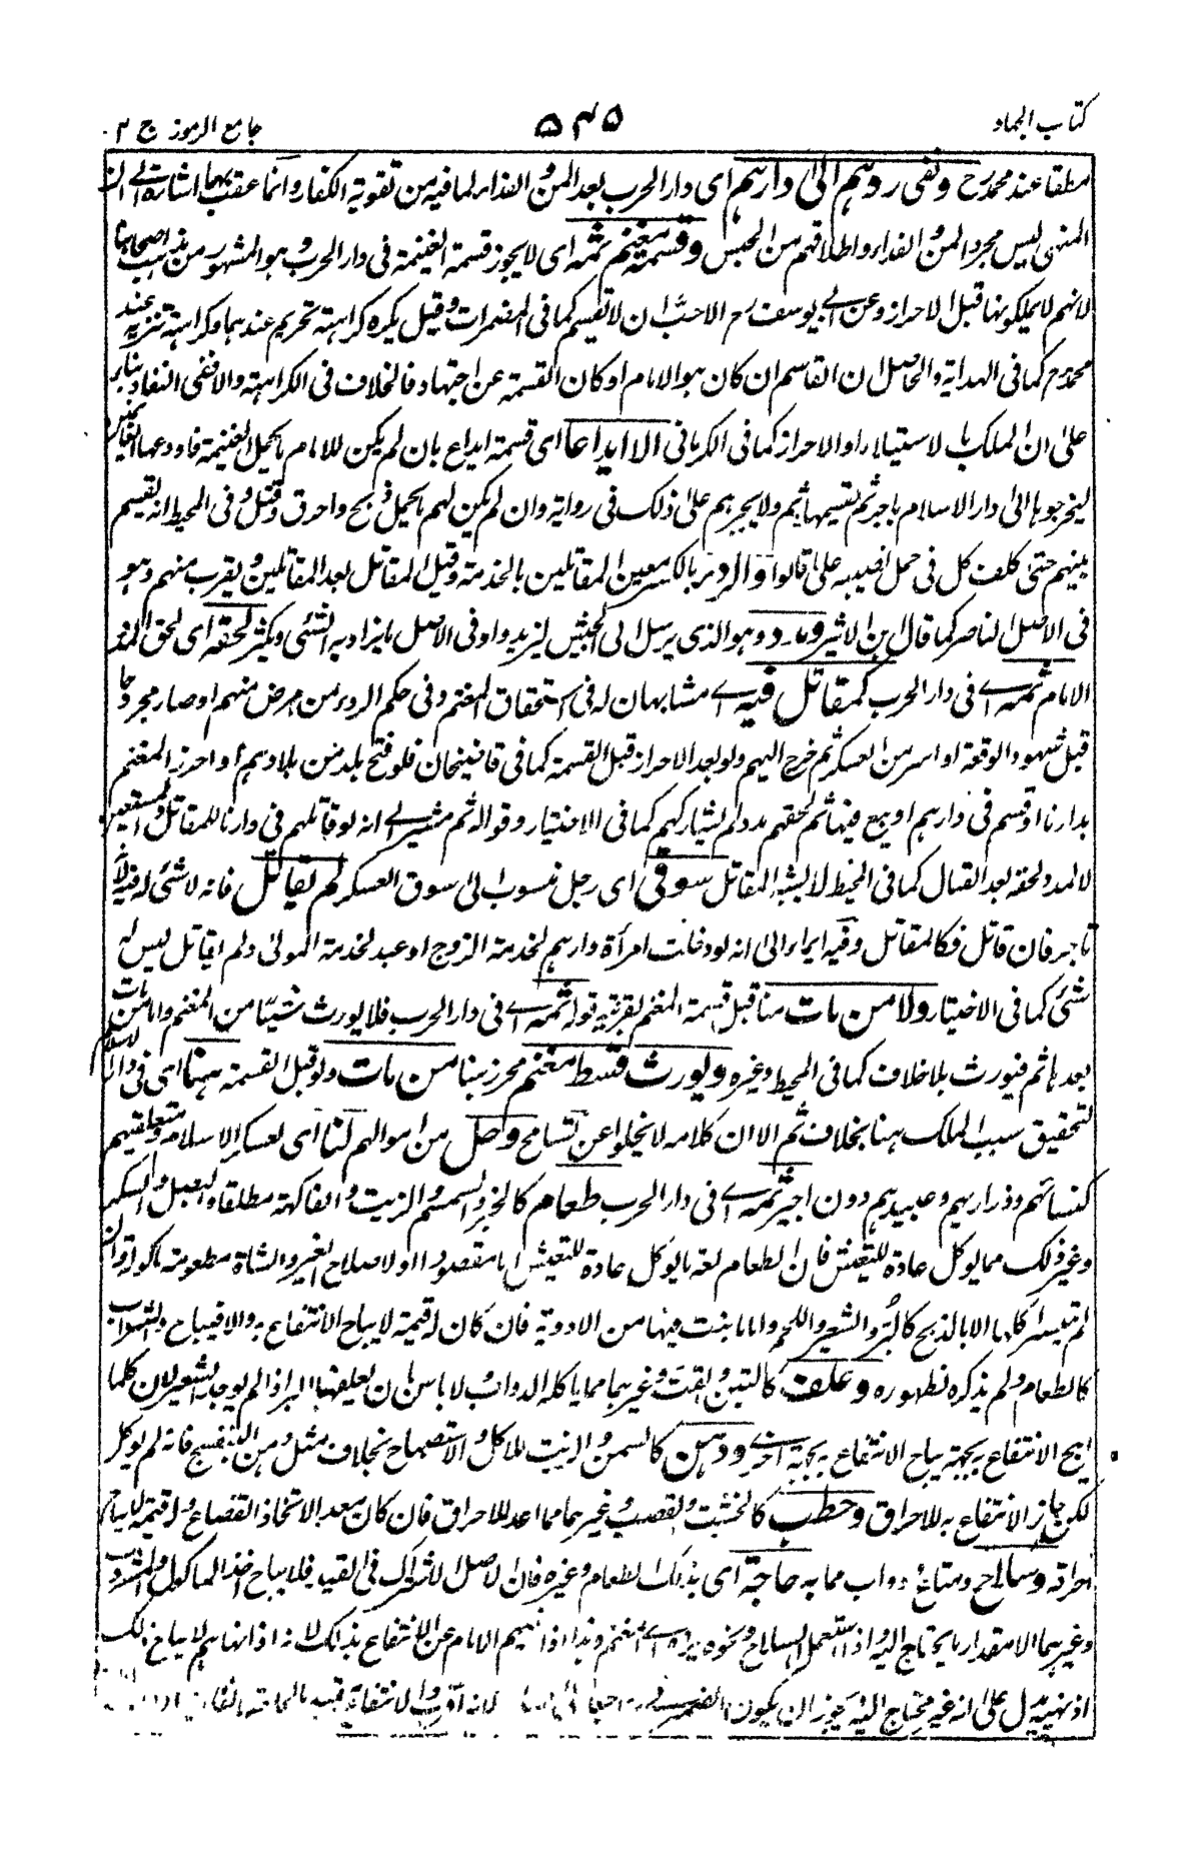 كتاب الجهاد ۵۴۵ جامع الرموز ج ۲
مطلقا عند محمد رح ونفى ردهم الى دارهم اى دار الحرب بعد المن والفداء لما فيه من تقوية الكفار وانما عقب بهما اشارة الى ان
المنهى ليس مجرد المن والفداء واطلاقهم من الحبس وقسمة مغنم ثمه اى لا يجوز قسمة الغنيمة فى دار الحرب هو المشهور من مذهب اصحابنا
لانهم لا يملكونها قبل الاحراز وعن ابى يوسف رح الاحب ان لا تقسم كما فى المضمرات وقيل يكره كراهة تحريم عندهما وكراهة تنزيه عند
محمد رح كما فى الهداية والحاصل ان القاسم ان كان هو الامام او كان القسمة عن اجتهاد فالخلاف فى الكراهة والا ففى النفاذ بناء
على ان الملك بالاستيلاء او الاحراز كما فى الكرمانى الا ايداعا اى قسمة ايداع بان لم يكن للامام ما يحمل الغنيمة فاودعها الغانمين
ليخرجوها الى دار الاسلام باجر ثم يقسمها ثم ولا يجبرهم على ذلك فى رواية وان لم يكن لهم ما يحمل ذبح واحرق وقتل وفى المحيط انه يقسم
بينهم حتى كلف كل فى حمل نصيبه على ما قالوا والردء بالكسر معين المقاتلين بالخدمة وقيل المقاتل بعد المقاتلين ويقرب منهم وهو
فى الاصل الناصر كما قال ابن الاثير ومدد وهو الذى يرسل الى الجيش ليزيدوا وفى الاصل ما يزاد به الشئ ويكثر لحقه اى لحق المدد
الامام ثمه اى فى دار الحرب كمقاتل فيه اى مشابهان له فى استحقاق المغنم وفى حكم الردء من مرض منهم او صار مجروحا
قبل شهود الوقعة او اسر من العسكر ثم خرج اليهم ولو بعد الاحراز قبل القسمة كما فى قاضيخان فلو فتح بلد من بلادهم او احرز المغنم
بدارنا او قسم فى دارهم او بيع فيها ثم لحقهم مدد لم يشاركهم كما فى الاختيار وقوله ثم مشير الى انه لو قاتلهم فى دارنا للمقاتل والمستعين
لا لمدد لحقه بعد القتال كما فى المحيط لا يشبه المقاتل سوقى اى رجل منسوب الى سوق العسكر لم يقاتل فانه لا شئ له فيه لانه
تاجر فان قاتل فكالمقاتل وفيه ايماء الى انه لو دخلت امرأة دارهم لخدمة الزوج او عبد لخدمة المولى ولم يقاتل ليس له
شئ كما فى الاختيار ولا من مات منا قبل قسمة المغنم بقرينة قوله ثمه اى فى دار الحرب فلا يورث شيئا من المغنم واما من مات
بعدها ثم فيورث بلا خلاف كما فى المحيط وغيره ويورث قسط مغنم محرز بنا من مات ولو قبل القسمة هنا اى فى دار الاسلام
لتحقق سبب الملك هنا بخلاف ثم الا ان كلامه لا يخلو عن تسامح وحل من اموالهم لنا اى لعسكر الاسلام ومتعلقيهم
كنسائهم وذراريهم وعبيدهم دون اجير ثمه اى فى دار الحرب طعام كالخبز والسمسم والزيت والفاكهة مطلقا والبصل والسكر
وغير ذلك مما يوكل عادة للتعيش فان الطعام لغة ما يوكل عادة للتعيش اما مقصودا او لاصلاح الغير والشاة مطعومة ماكولة وان
لم تيسر اكلها الا بالذبح كالبر والشعير واللحم واما ما ينبت فيها من الادوية فان كان له قيمة لا يباح الانتفاع به والا فيباح والشراب
كالطعام ولم يذكره لظهوره وعلف كالتبن والقت وغيرهما مما ياكله الدواب ولا باس بان يعلفها البر اذا لم يوجد الشعير لان كلما
ابيح الانتفاع به بجهة يباح الانتفاع به بجهة اخرى ودهن كالسمن والزيت للاكل والاستصباح بخلاف مثل دهن البنفسج فانه لم يوكل
لكن جاز الانتفاع به للاحراق وحطب كالخشب والقصب وغيرهما مما اعد للاحراق فان كان معدا لاتخاذ القصاع وله قيمة لا يباح
احراقه وسلاح ومتاع ودواب مما به حاجة اى بذلك الطعام وغيره فان الاصل الاشتراك فى القيد فلا يباح اخذ الماكول والمشروب
وغيرهما الا مقدار ما يحتاج اليه واذا استعمل السلاح ونحوه يرده الى المغنم وهذا اذا لم ينههم الامام عن الانتفاع بذلك لانه اذا نهاهم لا يباح ذلك
اذ نهيه يدل على انه غير محتاج اليه ويجوز ان يكون الضمير لانه اقرب والانتفاع